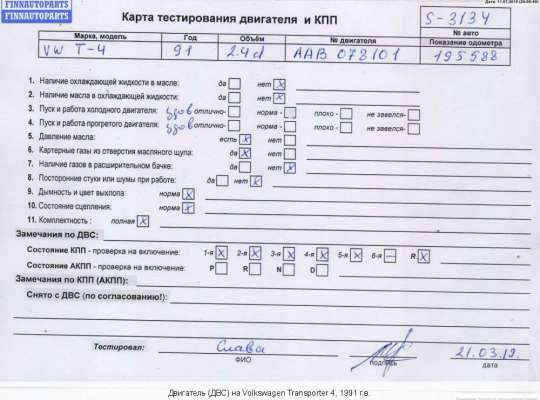 FINNAUTOPARTS
FINNAUTOPARTS
Карта тестирования двигателя и КПП
S-3134
№ авто
Марка, модель Год Объём № двигателя Показание одометра
VW T-4 91 2.4d AAB 073101 195588
1. Наличие охлаждающей жидкости в масле: да нет x
2. Наличие масла в охлаждающей жидкости: да нет x
3. Пуск и работа холодного двигателя: удов отлично- норма - плохо - не завелся-
4. Пуск и работа прогретого двигателя: удов отлично- норма - плохо - не завелся-
5. Давление масла: есть x нет
6. Картерные газы из отверстия масляного щупа: да x нет
7. Наличие газов в расширительном бачке: да нет x
8. Посторонние стуки или шумы при работе: да нет x
9. Дымность и цвет выхлопа: норма x
10. Состояние сцепления: норма x
11. Комплектность : полная x
Замечания по ДВС:
Состояние КПП - проверка на включение: 1-я x 2-я x 3-я x 4-я x 5-я x 6-я — R x
Состояние АКПП - проверка на включение: P R N D
Замечания по КПП (АКПП):
Снято с ДВС (по согласованию!):
Тестировал: Слава 21.03.19.
ФИО подпись дата
Двигатель (ДВС) на Volkswagen Transporter 4, 1991 г.в.